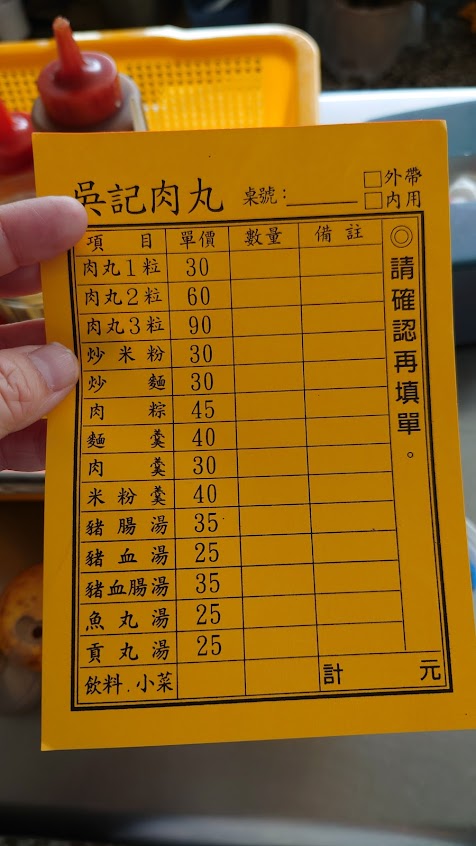 吳記肉丸 桌號：______ □外帶
□內用
項目 單價 數量 備註
肉丸1粒 30
肉丸2粒 60
肉丸3粒 90
炒米粉 30
炒麵 30
肉粽 45
麵羹 40
肉羹 30
米粉羹 40
豬腸湯 35
豬血湯 25
豬血腸湯 35
魚丸湯 25
貢丸湯 25
飲料.小菜 計 元
◎請確認再填單。